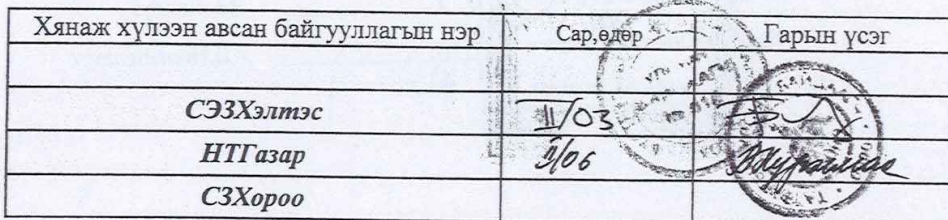 Хянаж хүлээн авсан байгууллагын нэр Сар,өдөр Гарын үсэг
СЭЗХэлтэс II/03
НТГазар II/06
СЗХороо